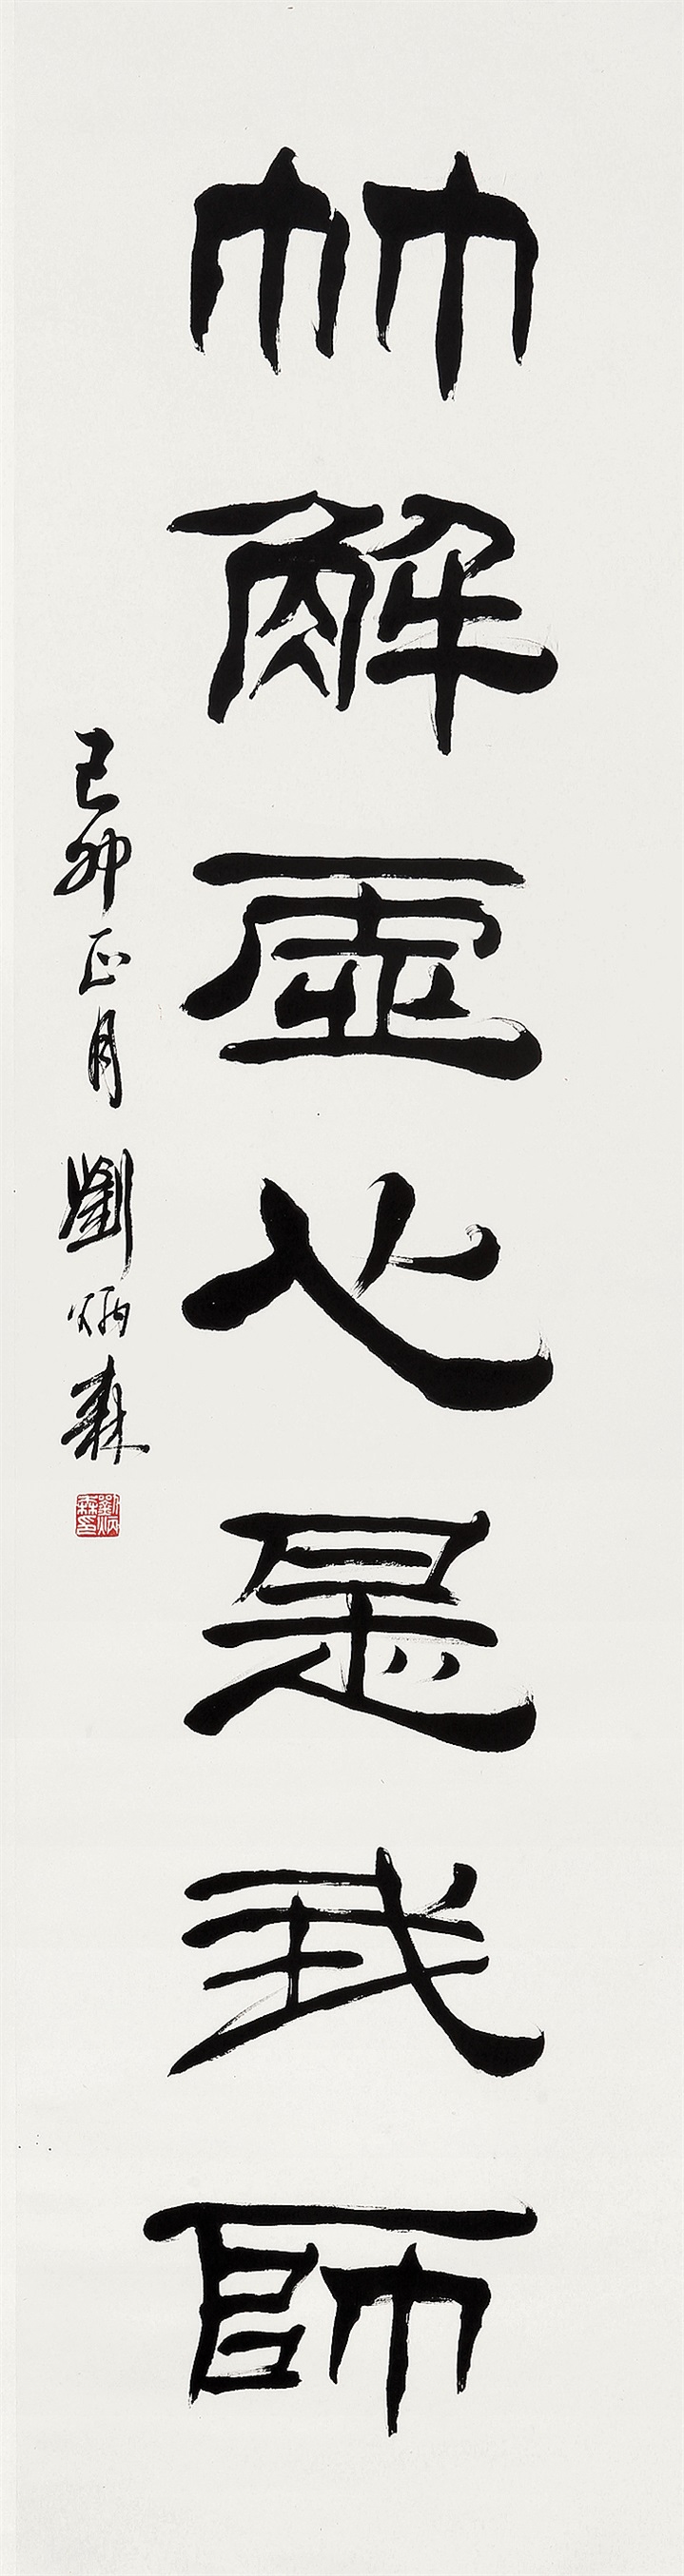 竹解虚心是我師
己卯正月 劉炳森
劉炳森印